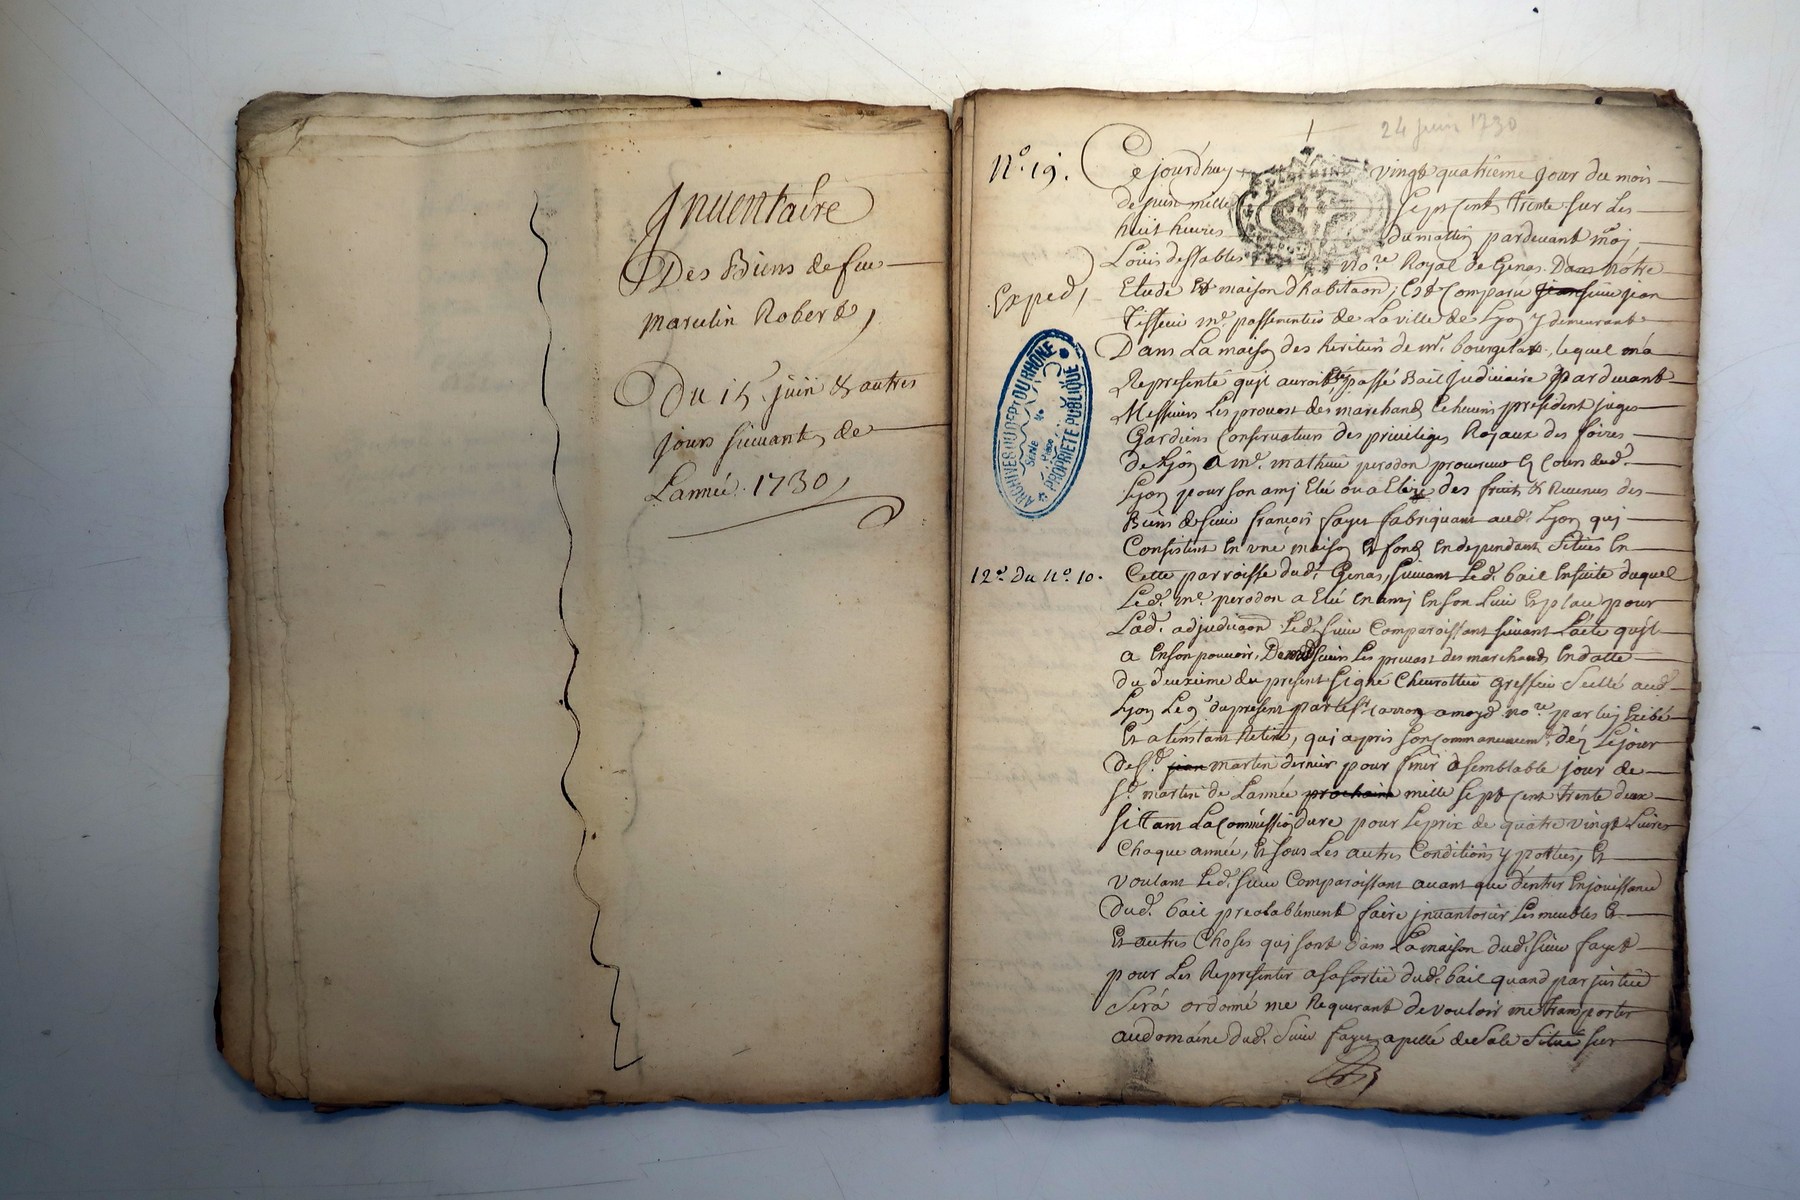 Inuentaire
Des Biens de feu
Marcelin Robert,
Du 15 juin & autres
jours suiuants de
Lannée 1730
24 juin 1730
N.º 19.
Exped,
ARCHIVES DU DEPT DU RHÔNE
PROPRIÉTÉ PUBLIQUE
12.e du n.o 10.
Ce jourdhuy vingt quatrieme jour du mois
de juin mille sept cent trente sur les
huit heures du mattin pardeuant moy,
Louis dessables no.re Royal de Genas Dans notre
Etude et maison dhabitaon, Est Comparu jean sieur jean
Tisseur m.e passementier de La ville de Lyon y demeurant
Dans La maison des heritiers de m.r bourgelat, lequel m'a
Representé quil auroit esté passé Bail Judiciaire pardeuant
Messieurs Les preuost des marchands Echeuins president juges
Gardiens Conseruateurs des priuileges Royaux des foires
de Lyon a m.e mathieu perodon procureur es Cours dud.
Lyon pour son amy Eleu ou a Elire des fruits & Reuenus des
Biens de sieur françois fayet fabriquant aud. Lyon qui
Consistent En vne maison et fonds En dependant Situés En
Cette parroisse dud. Genas, suiuant Led. bail Ensuite duquel
Led. m.e perodon a Eleu En amy En son Lieu Et place pour
Lad. adjudicaon Led. sieur Comparoissant suiuant Lacte quil
a En son pouuoir, De mesd sieurs Les preuost des marchands En datte
du deuxieme du present signé Cheurottier greffier Scellé aud.
Lyon Le 9 du present par Le s.r carron a moyd. no.re par luy Exibé
Et a L'instant Retiré, qui a pris son commancement dez Le jour
de s.t jean martin dernier pour finir a semblable jour de
s.t martin de Lannée prochaine mille sept cent trente deux
si tant La Commission dure pour Le prix de quatre vingt Liures
Chaque année, Et sous Les autres Conditions y portées, Et
voulant Led. sieur Comparoissant auant que d'entrer En jouissance
dud. bail prealablement faire jnuantorier Les meubles Et
Et autres Choses qui sont dans La maison dud. sieur fayet
pour Les Representer a sa sortie dud. bail quand par justice
Sera ordonné me Requerant de vouloir me transporter
au domaine dud. sieur fayet apellé de Sale Situé sur